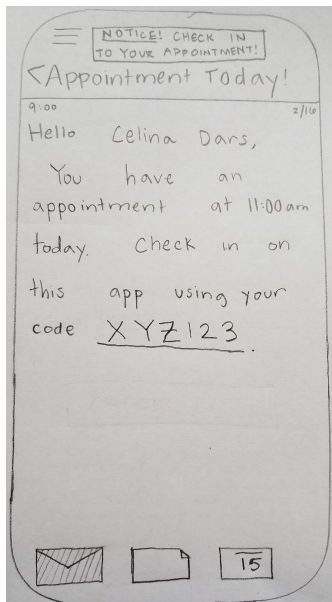 NOTICE! CHECK IN
TO YOUR APPOINTMENT!
<Appointment Today!
9:00
2/16
Hello Celina Dars,
You have an
appointment at 11:00am
today. Check in on
this app using your
code XYZ123.
15